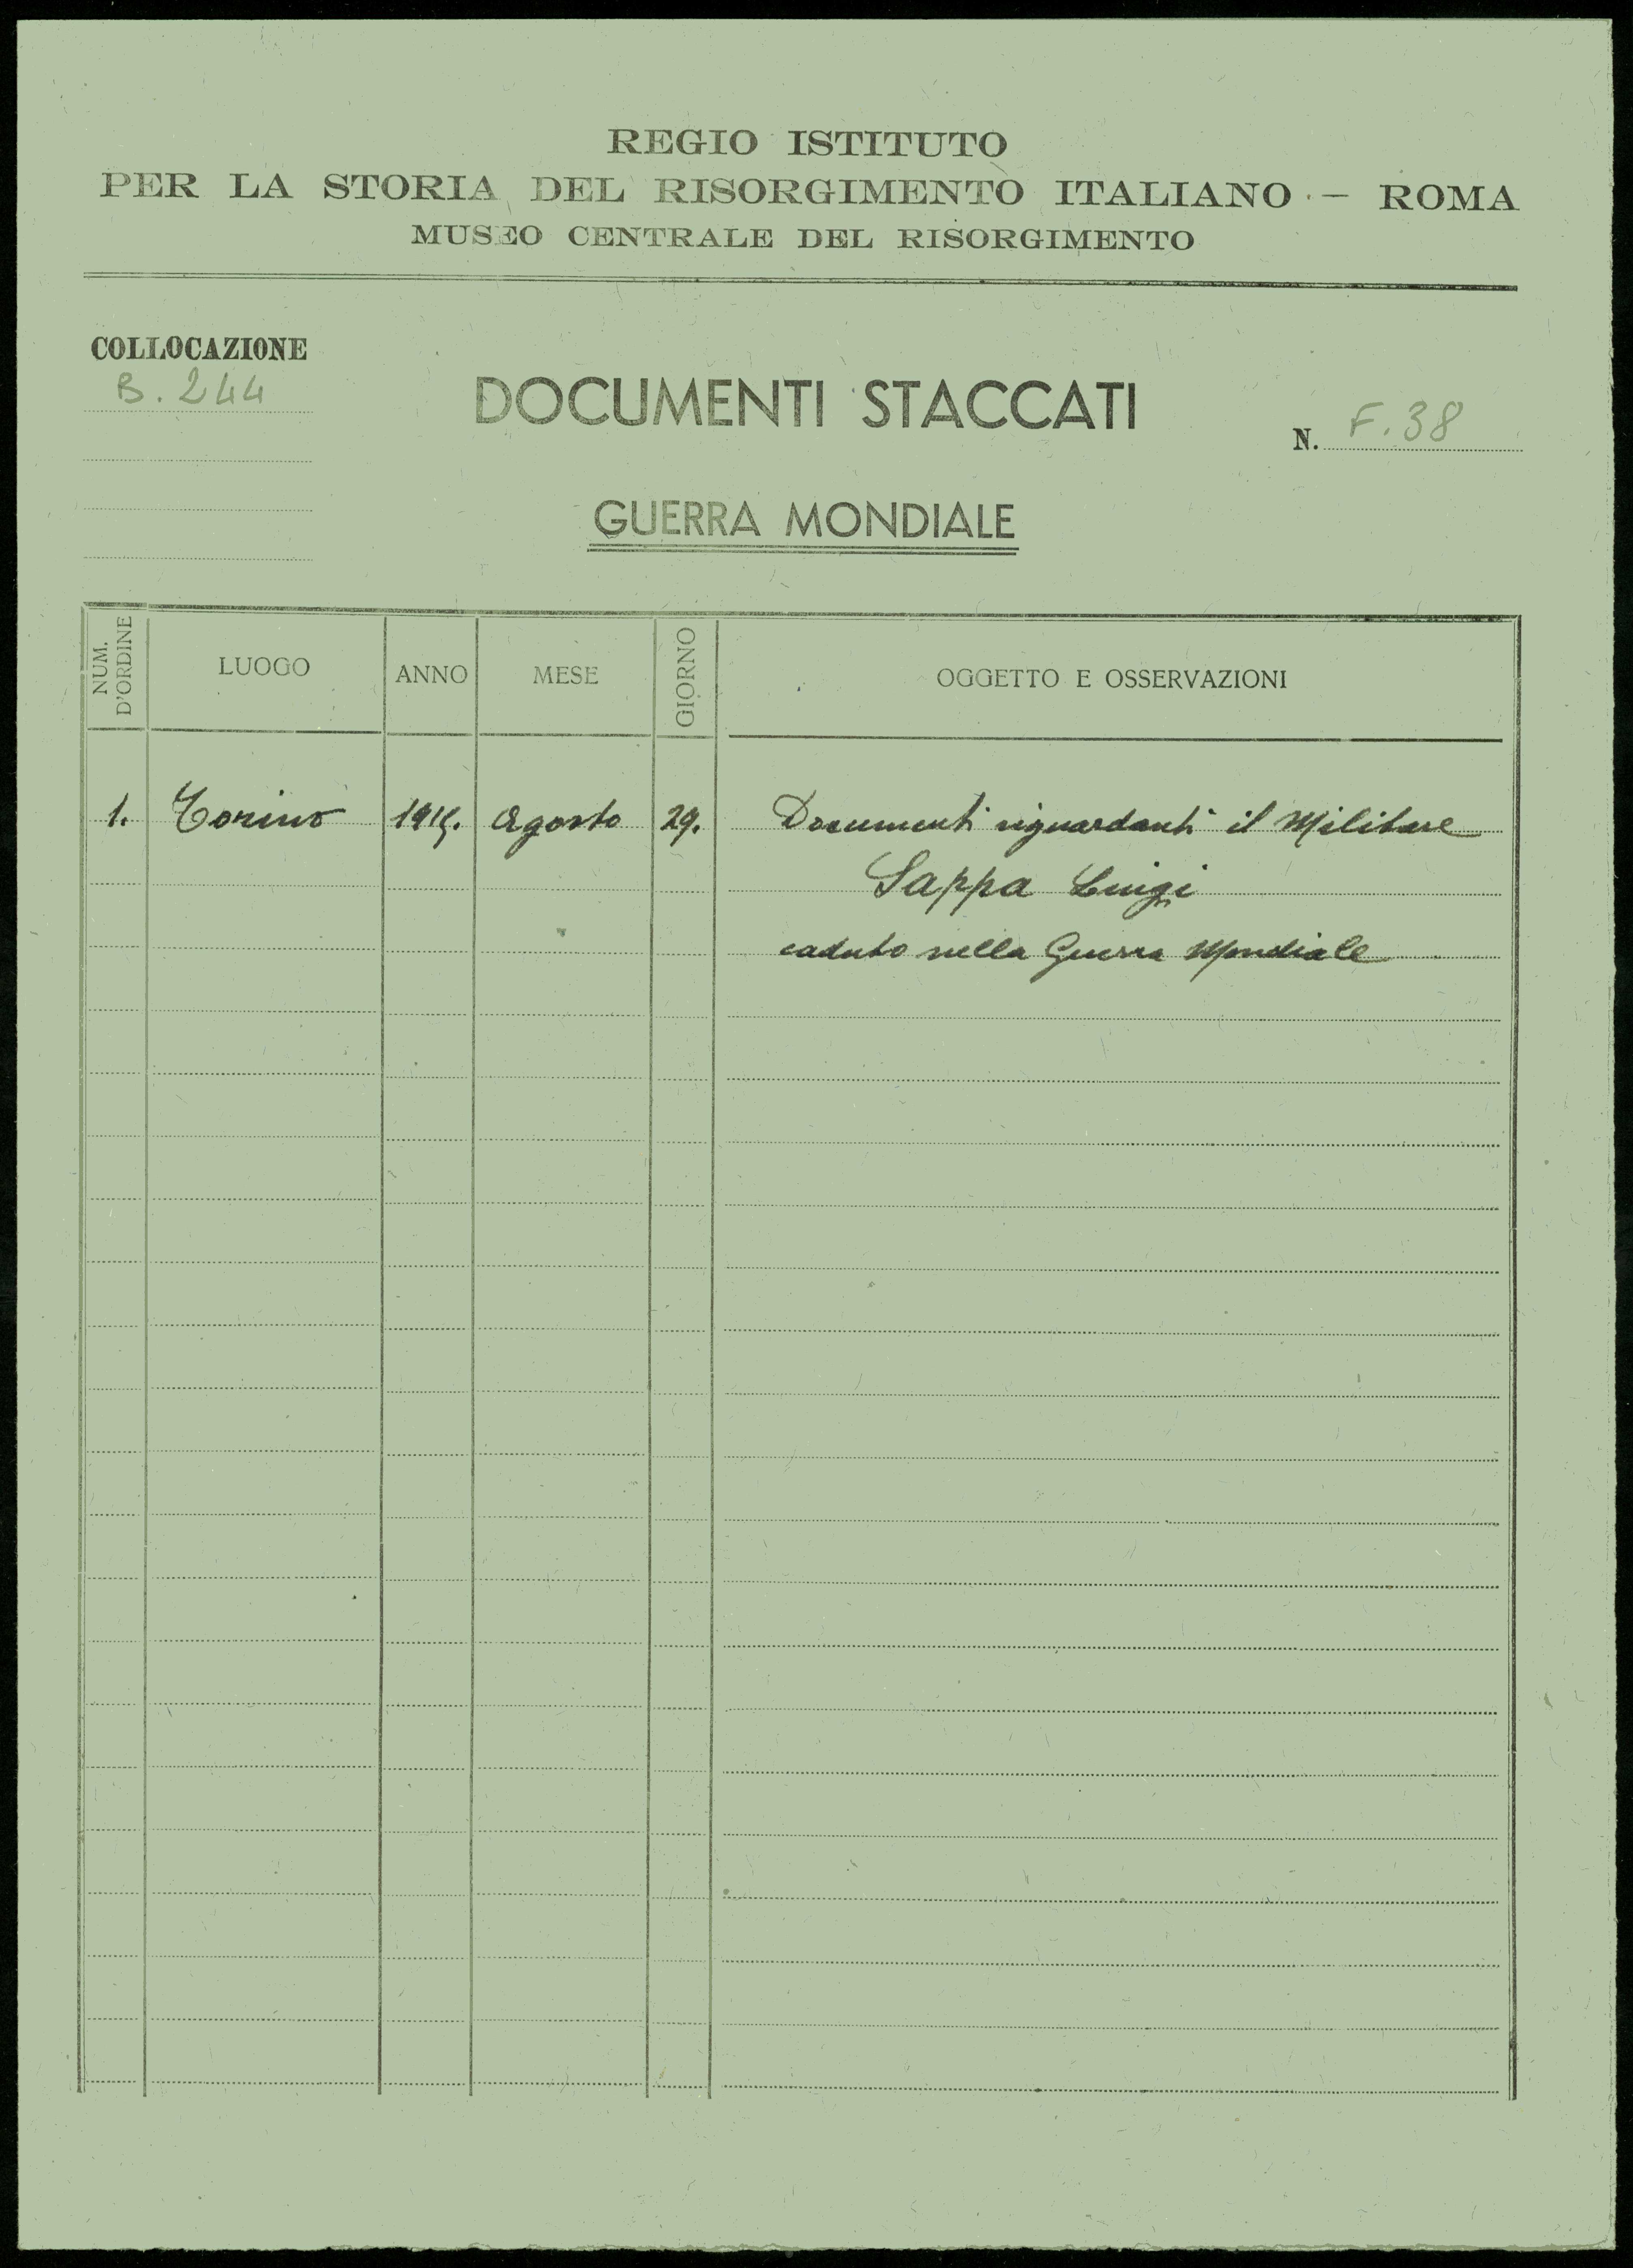 REGIO ISTITUTO
PER LA STORIA DEL RISORGIMENTO ITALIANO - ROMA
MUSEO CENTRALE DEL RISORGIMENTO
COLLOCAZIONE
B. 244
DOCUMENTI STACCATI
N. F. 38
GUERRA MONDIALE
NUM. D'ORDINE LUOGO ANNO MESE GIORNO OGGETTO E OSSERVAZIONI
1. Torino Agosto 29. Documenti riguardanti il Militare
Sappa Luigi
caduto nella Guerra Mondiale